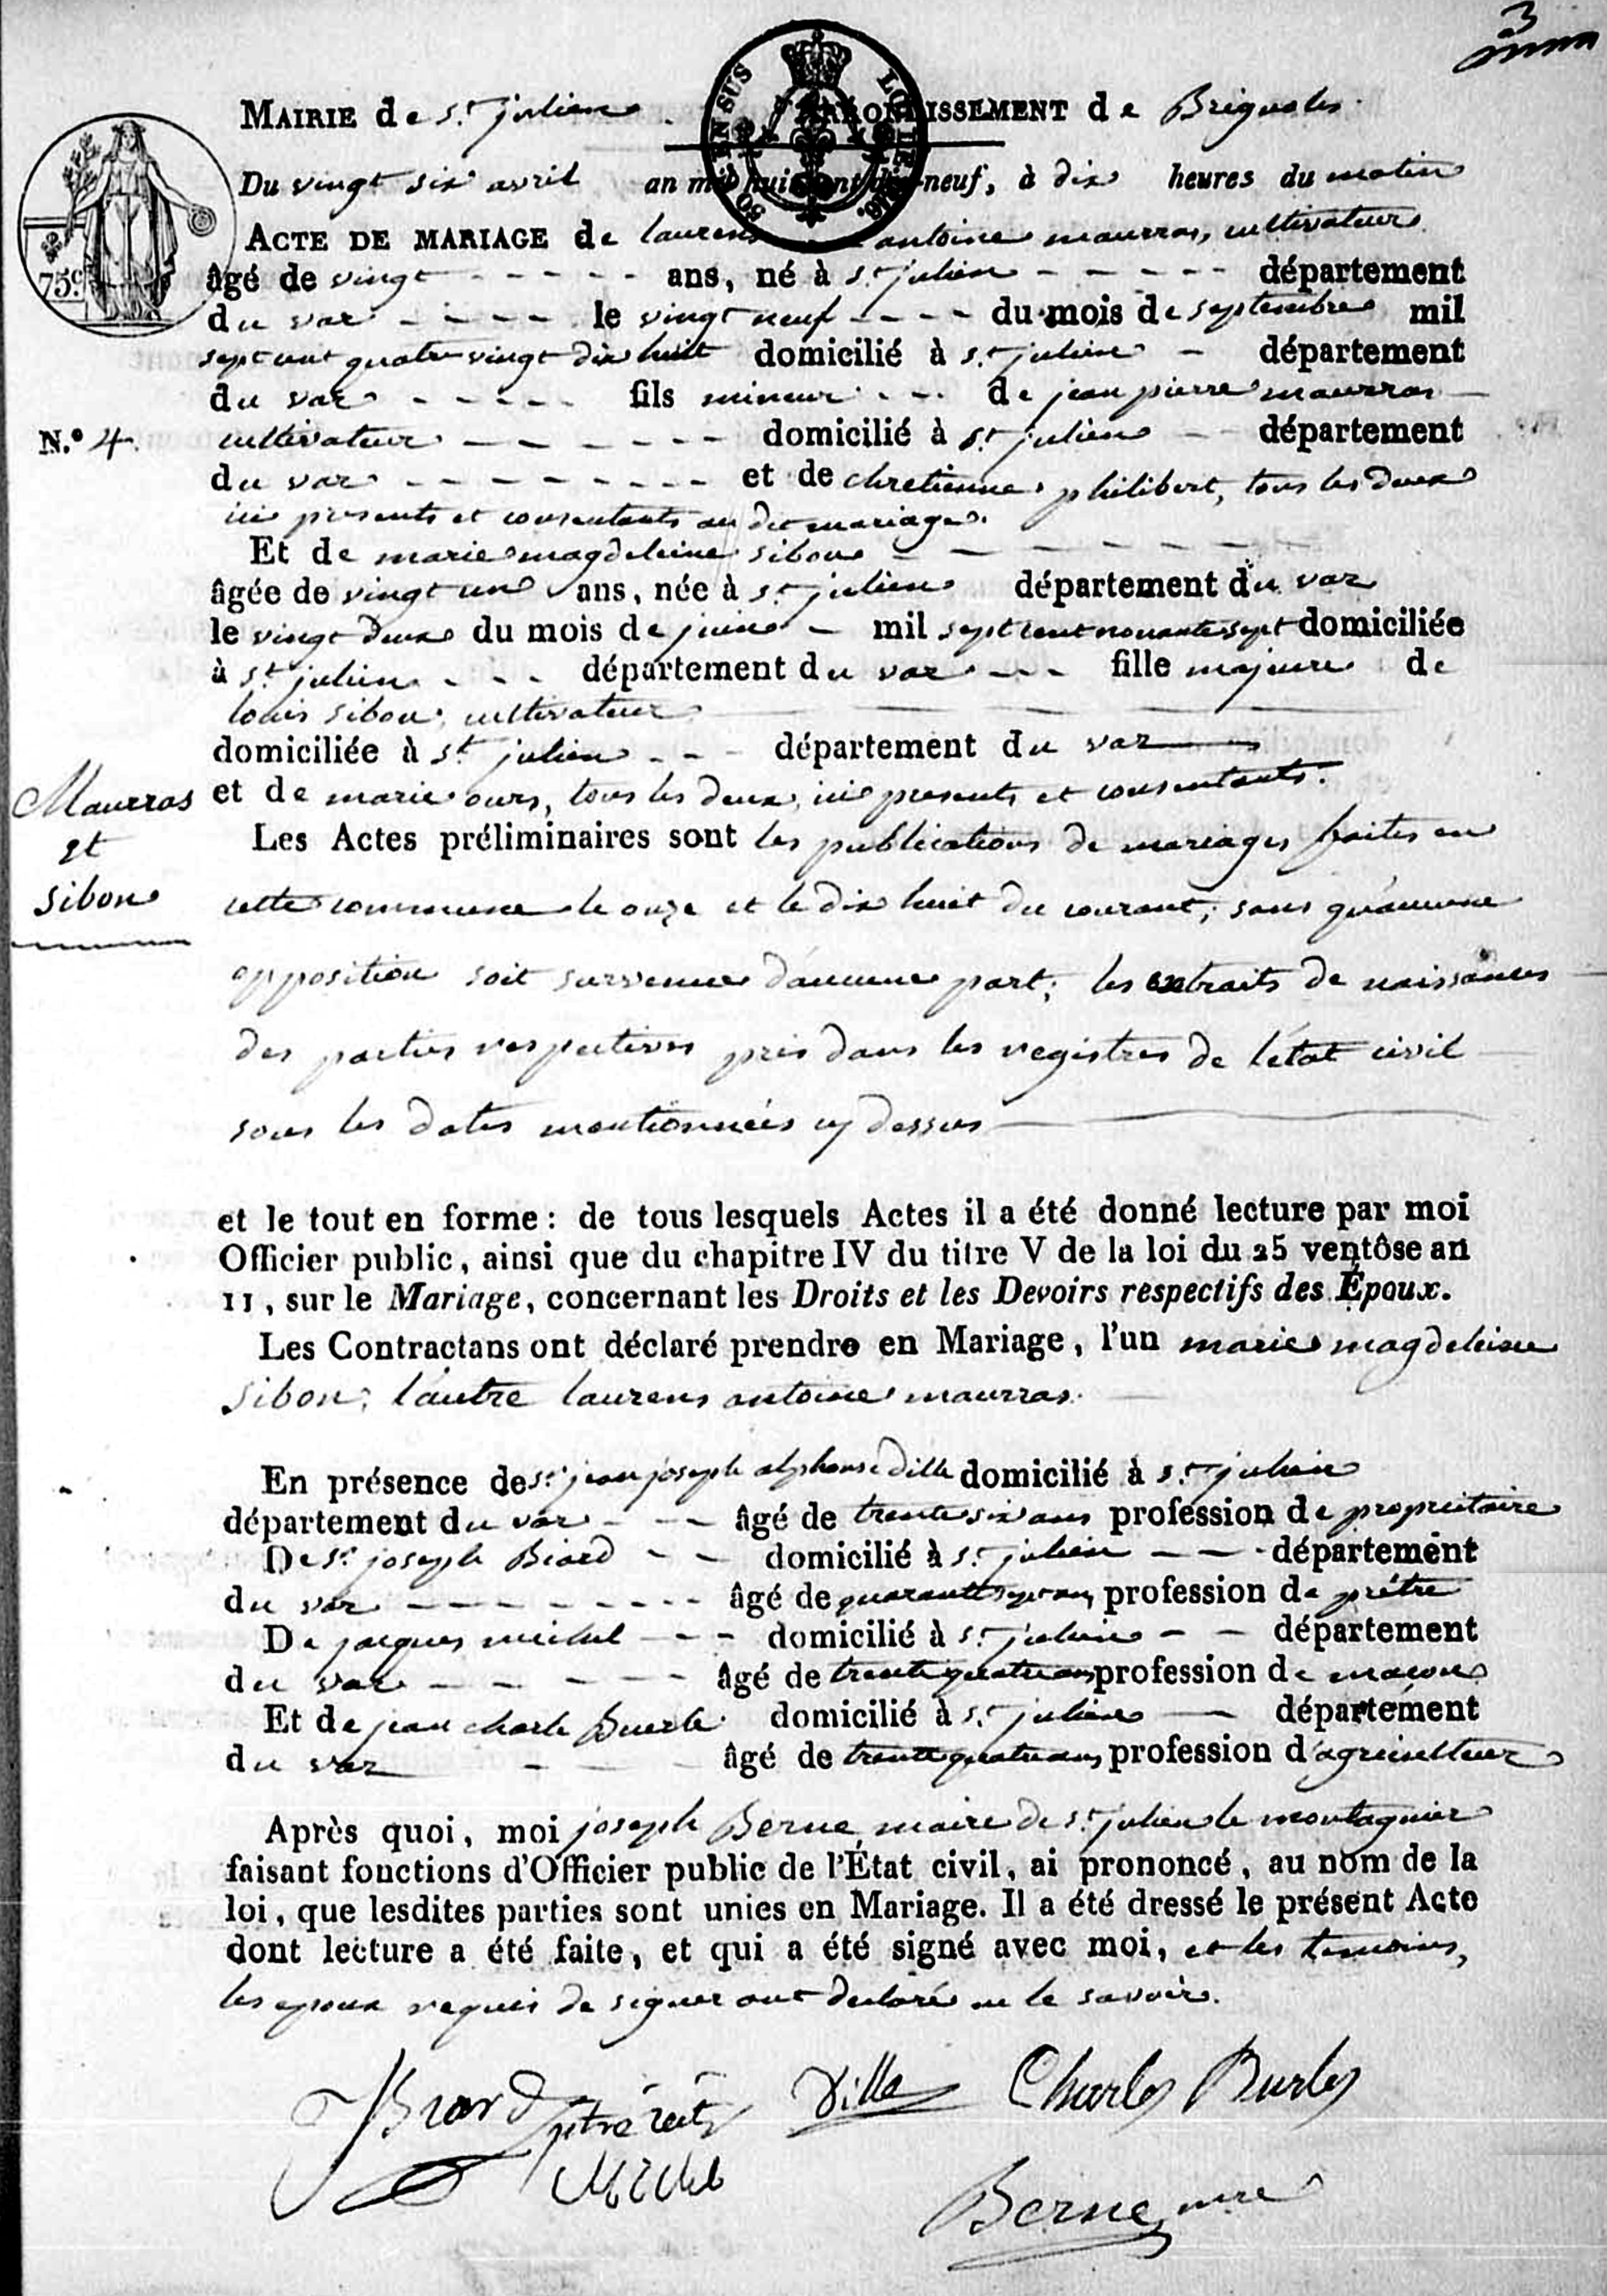 3
MAIRIE de St. julien . ARRONDISSEMENT de Brignoles.
EN SUS LOI DE
Du vingt six avril an mil huit cent dix-neuf, à dix heures du matin
ACTE DE MARIAGE de laurens antoine maurras, cultivateur
75c.
âgé de vingt ans, né à St. julien département
du var le vingt neuf du mois de septembre mil
sept cent quatre vingt dix huit domicilié à St. julien département
du var fils mineur de jean pierre maurras
N.º 4. cultivateur domicilié à St. julien département
du var et de chretienne philibert, tous les deux
ici presents et consentants au dit mariage.
Et de marie magdeleine sibon
âgée de vingt un ans, née à St. julien département du var
le vingt deux du mois de juin mil sept cent nonante sept domiciliée
à St. julien département du var fille majeure de
louis sibon, cultivateur
domiciliée à St. julien département du var
Maurras
et
sibon
et de marie ours, tous les deux, ici presents et consentants.
Les Actes préliminaires sont les publications de mariages faites en
cette commune le onze et le dix huit du courant; sans qu'aucune
opposition soit survenue d'aucune part; les extraits de naissances
des parties respectives pris dans les registres de l'état civil
sous les dates mentionnées cy dessus
et le tout en forme : de tous lesquels Actes il a été donné lecture par moi
Officier public, ainsi que du chapitre IV du titre V de la loi du 25 ventôse an
11, sur le Mariage, concernant les Droits et les Devoirs respectifs des Époux.
Les Contractans ont déclaré prendre en Mariage, l'un marie magdeleine
Sibon; l'autre laurens antoine maurras.
En présence de Sr. jean joseph alphonse dille domicilié à St. julien
département du var âgé de trente six ans profession de propriétaire
De Sr. joseph Biard domicilié à St. julien département
du var âgé de quarante sept ans profession de prêtre
De jacques michel domicilié à St. julien département
du var âgé de trente quatre ans profession de maçon
Et de jean charle Buerle domicilié à St. julien département
du var âgé de trente quatre ans profession d'agriculteur
Après quoi, moi joseph Berne, maire de St. julien le montagnier
faisant fonctions d'Officier public de l'État civil, ai prononcé, au nom de la
loi, que lesdites parties sont unies en Mariage. Il a été dressé le présent Acte
dont lecture a été faite, et qui a été signé avec moi, et les temoins,
les epoux requis de signer ont declaré ne le savoir.
JBiard ptre Dille Charles Burles
Michel
Berne, mre